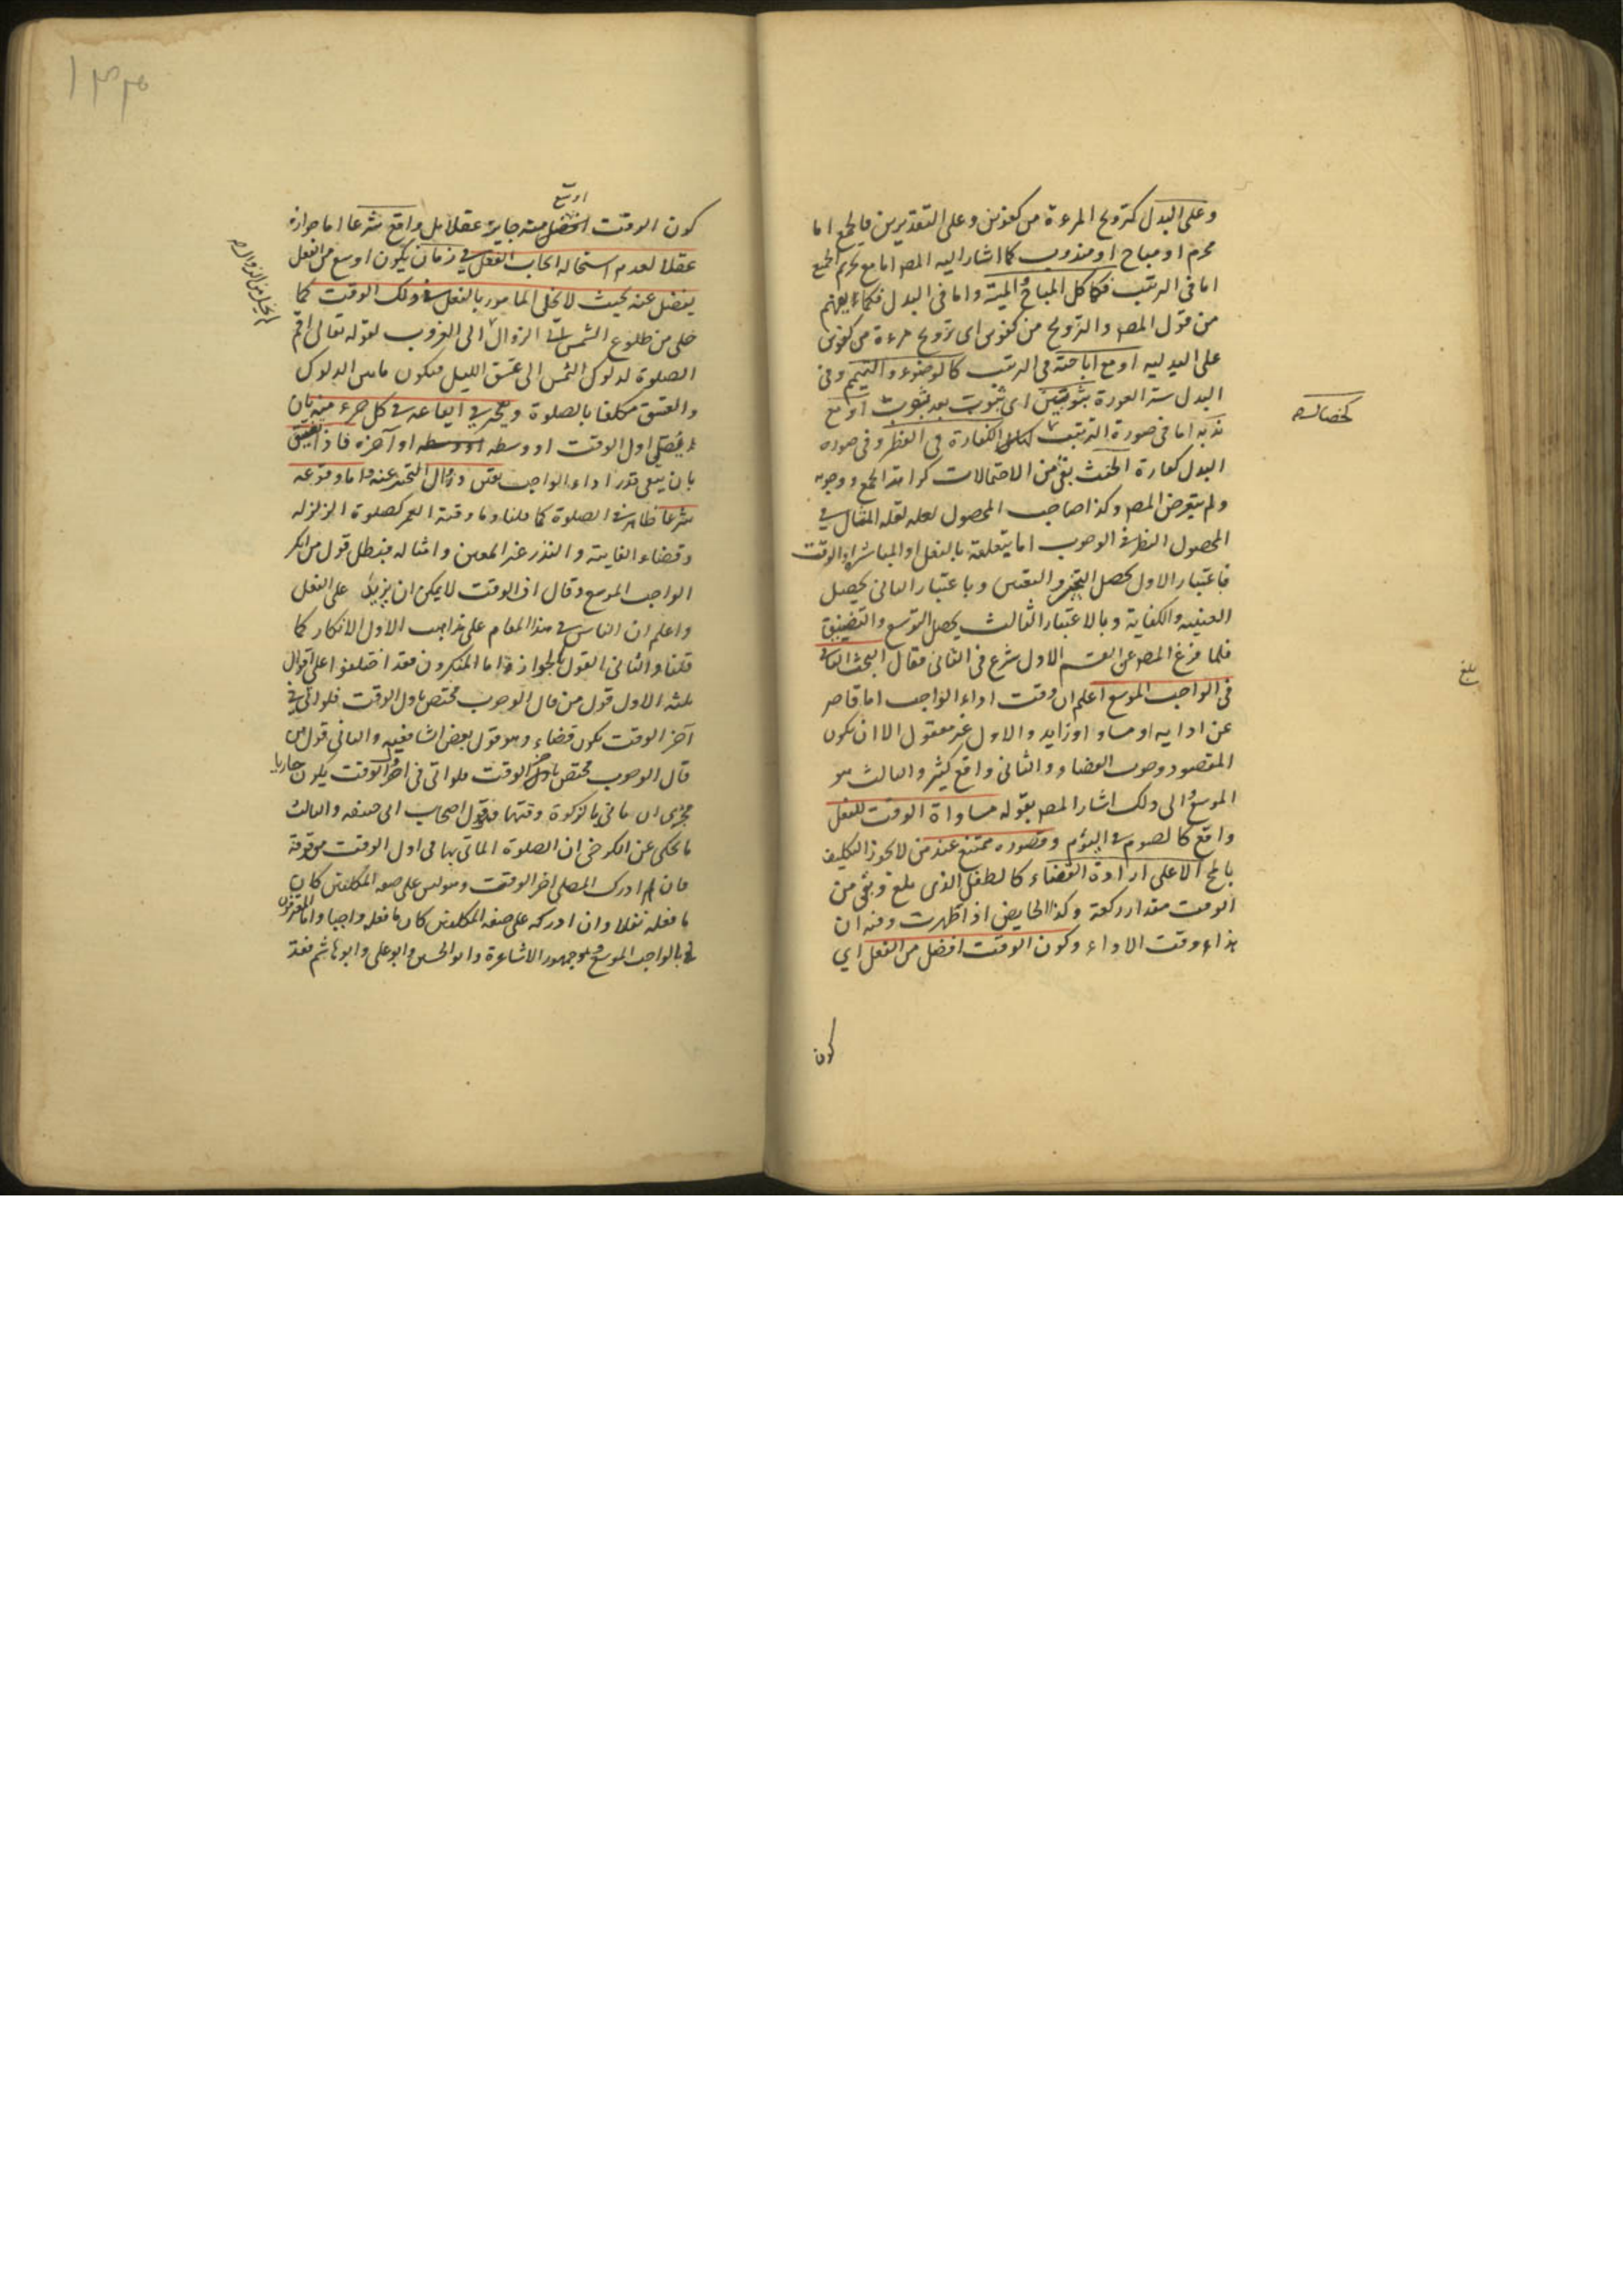 وعلى البدل كتزويج المرءة من كفوين وعلى التقديرين فالجمع اما
محرم او مباح او مندوب كما اشار اليه المصـ اما مع تحريم الجمع
اما في المرتب فكاكل المباح والميتة واما في البدل فكما يفهم
من قول المصـ والتزويج من كفوين اى تزويج مرءة من كفوين
على البدلية او مع اباحته فى المرتب كالوضوء والتيمم وفى
البدل ستر العورة بثوبين اى بثوب بعد بثوب او مع
ندبه اما فى صورة الترتيب الكفارة فى الفطر وفى صورة
كخصال
البدل كفارة الحنث بقى من الاحتمالات كراهة الجمع ووجوبه
ولم يتعرض المصـ وكذا صاحب المحصول لعله لقلة المقال فى
المحصول النظر فى الوجوب اما يتعلقه بالفعل او المباشر او الوقت
فاعتبار الاول يحصل التخيير والتعيين وباعتبار الثانى يحصل
العينية والكفاية وبالاعتبار الثالث يحصل التوسع والتضييق
فلما فرغ المصـ عن القسم الاول شرع فى الثانى فقال البحث الثانى
فى الواجب الموسع اعلم ان وقت اداء الواجب اما قاصر
بلغ
عن ادايه او مساو او زايد والاول غير معقول الا ان يكون
المقصود وجوب القضاء والثانى واقع كثير والثالث هو
الموسع والى ذلك اشار المصـ بقوله مساواة الوقت للفعل
واقع كالصوم فى اليوم وقصوره ممتنع عند من لا يجوز التكليف
بالمح الا على ارادة القضاء كالطفل الذى بلغ وبقى من
الوقت مقدار ركعة وكذا الحايض اذا طهرت وفيه ان
هذا وقت الاداء وكون الوقت افضل من الفعل اي
كون
اوسع
كون الوقت افضل منه جايز عقلا بل واقع شرعا اما جوازه
عقلا لعدم استحالة ايجاب الفعل فى زمان يكون اوسع من الفعل
يفضل عنه بحيث لا يخلى المامور بالفعل فى ذلك الوقت كما
خلى من طلوع الشمس الى الزوال الى الغروب لقوله تعالى اقم
الصلوة لدلوك الشمس الى غسق الليل فيكون مابين الدلوك
والغسق مكلفا بالصلوة ويتخير فى ايقاعه فى كل جزء منه بان
يصلى اول الوقت او وسطه او آخره فاذا تضيق
بان يبقى قدر اداء الواجب تعين وزال التخير عنه واما وقوعه
شرعا ظاهر فى الصلوة كما قلنا وما وقته العمر كصلوة الزلزلة
وقضاء الفايتة والنذر غير المعين وامثاله فبطل قول من انكر
الواجب الموسع وقال ان الوقت لا يمكن ان يزيد على الفعل
واعلم ان الناس فى هذا المقام على مذاهب الاول الانكار كما
قلنا والثانى القول بالجواز واما المنكرون فقد اختلفوا على اقوال
ثلثة الاول قول من قال الوجوب مختص باول الوقت فلو اتى فى
آخر الوقت يكون قضاء وهو قول بعض الشافعية والثانى قول من
قال الوجوب مختص باخر الوقت فلو اتى فى اول الوقت يكون جاريا
مجرى ان ياتى بالزكوة وقتها قول اصحاب ابى حنيفه والثالث
ما يحكى عن الكرخى ان الصلوة الماتى بها فى اول الوقت موقوفة
فان ادرك المصلى اخر الوقت وهو ليس على صفة المكلفين كان
ما فعله نفلا وان ادركه على صفة المكلفين كان ما فعله واجبا واما المعترفون
بالواجب الموسع وهو جمهور الاشاعرة وابو الحسين وابو على وابو هاشم فقد